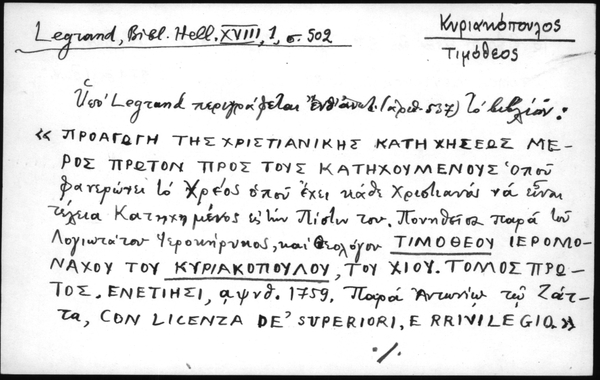 Legrand, Bibl. Hell. XVIII, 1, σ. 502
Κυριακόπουλος
Τιμόθεος
Ὑπὸ Legrand περιγράφεται (ἀριθ. 537) τὸ βιβλίον:
« ΠΡΟΑΓΩΓΗ ΤΗΣ ΧΡΙΣΤΙΑΝΙΚΗΣ ΚΑΤΗΧΗΣΕΩΣ ΜΕ-
ΡΟΣ ΠΡΩΤΟΝ ΠΡΟΣ ΤΟΥΣ ΚΑΤΗΧΟΥΜΕΝΟΥΣ ὁποῦ
φανερώνει τὸ Χρέος ὁποῦ ἔχει κάθε Χριστιανὸς νὰ εἶναι
τέλεια Κατηχημένος εἰς τὴν Πίστιν του. Πονηθεῖσα παρὰ τοῦ
Λογιωτάτου Ἱεροκήρυκος, καὶ Θεολόγου ΤΙΜΟΘΕΟΥ ΙΕΡΟΜΟ-
ΝΑΧΟΥ ΤΟΥ ΚΥΡΙΑΚΟΠΟΥΛΟΥ, ΤΟΥ ΧΙΟΥ. ΤΟΜΟΣ ΠΡΩ-
ΤΟΣ. ΕΝΕΤΙΗΣΙ, αψνθ. 1759. Παρὰ Ἀντωνίῳ τῷ Ζάτ-
τα, CON LICENZA DE' SUPERIORI, E RRIVILEGIO. »
·/.